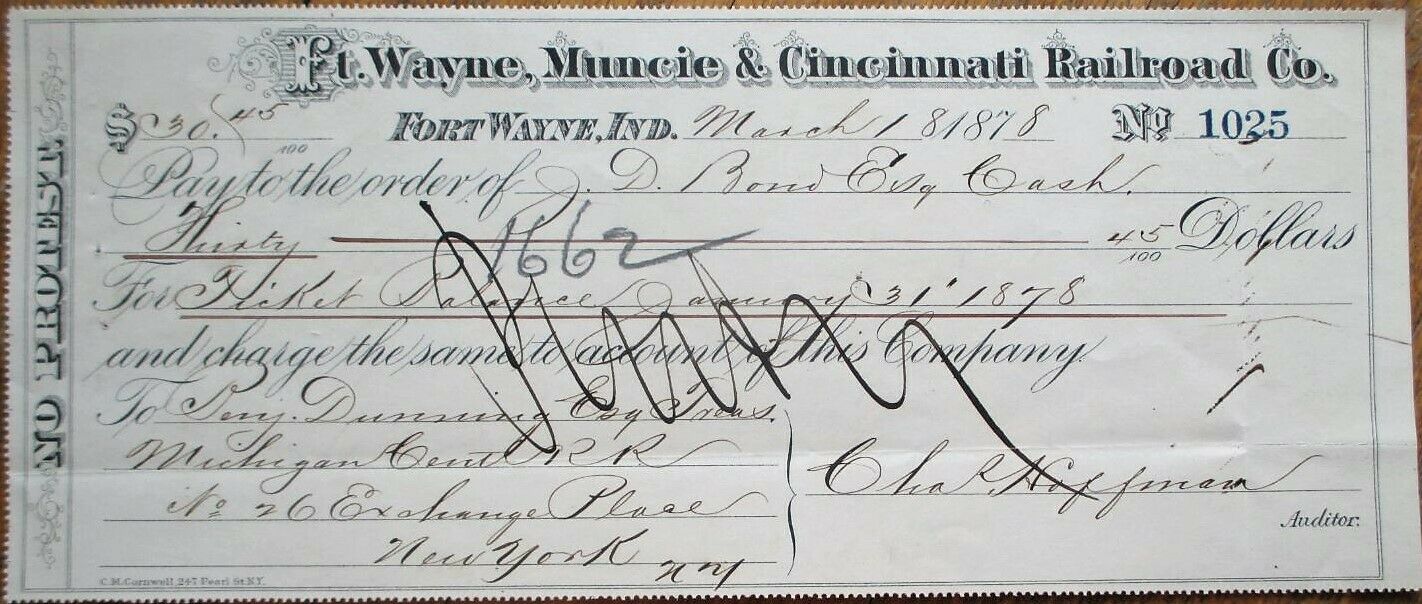 Ft. Wayne, Muncie & Cincinnati Railroad Co.
$ 30.45/100 FORT WAYNE, IND. March 18 1878 No 1025
Pay to the order of J. D. Bond Esq Cash.
Thirty 45/100 Dollars
1662
For Ticket Balance January 31" 1878
and charge the same to account of this Company.
To Benj. Dunning Esq Treas.
Michigan Cent R R
No 26 Exchange Place
New York N Y
Chas Hoffman
Auditor.
C.M. Cornwell, 247 Pearl St. N.Y.
NO PROTEST